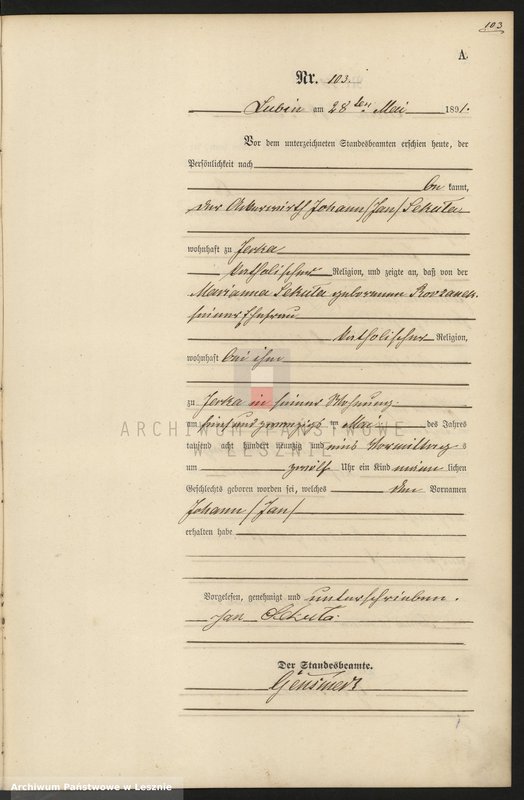 103
A.
Nr. 103.
Lubin am 28ten Mai 1891.
Vor dem unterzeichneten Standesbeamten erschien heute, der
Persönlichkeit nach
be kannt,
der Ackerwirth Johann /Jan/ Sekuła
wohnhaft zu Jerka
katholischer Religion, und zeigte an, daß von der
Marianna Sekuła geborenen
seiner Ehefrau
katholischer Religion,
wohnhaft bei ihm
zu Jerka in seiner Wohnung
am fünf und zwanzigsten Mai des Jahres
tausend acht hundert neunzig und eins Vormittags
um zwölf Uhr ein Kind männlichen
Geschlechts geboren worden sei, welches den Vornamen
Johann /Jan/
erhalten habe
Vorgelesen, genehmigt und unterschrieben.
Jan Sekuła
Der Standesbeamte.
ARCHIWUM PAŃSTWOWE
W LESZNIE
Archiwum Państwowe w Lesznie